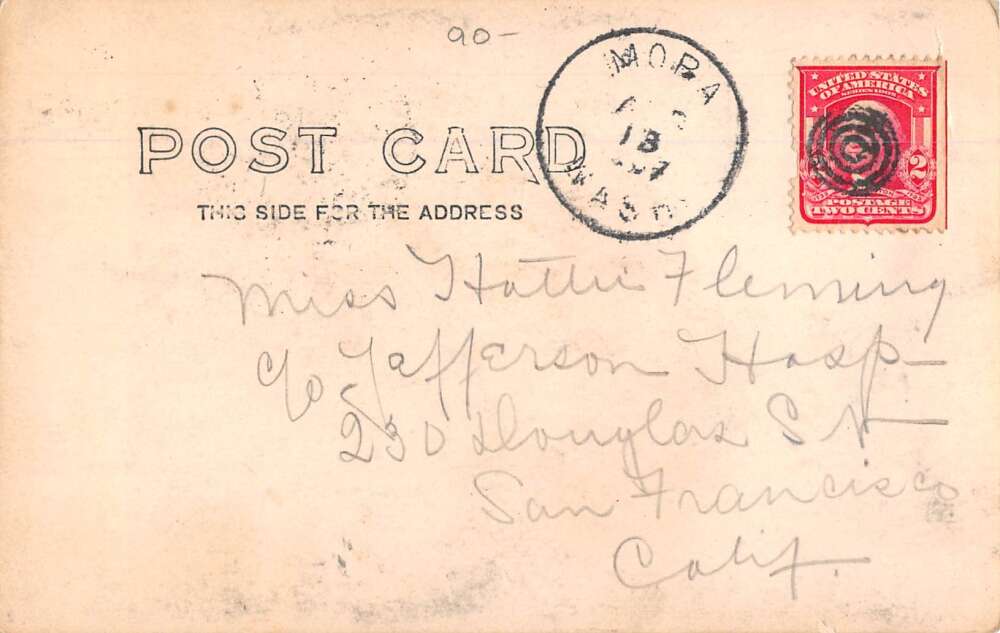 90-
MORA
18
WASH
UNITED STATES
OF AMERICA
SERIES 1902
2
POSTAGE
TWO CENTS
POST CARD
THIS SIDE FOR THE ADDRESS
Miss Hattie Fleming
c/o Jefferson Hosp-
230 Douglas St
San Francisco
Calif.